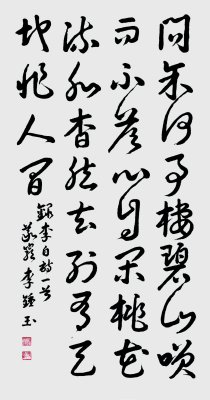 問余何事棲碧山咲
而不答心自閑桃花
流水杳然去別有天
地非人間
錄李白詩一首
李鍾玉